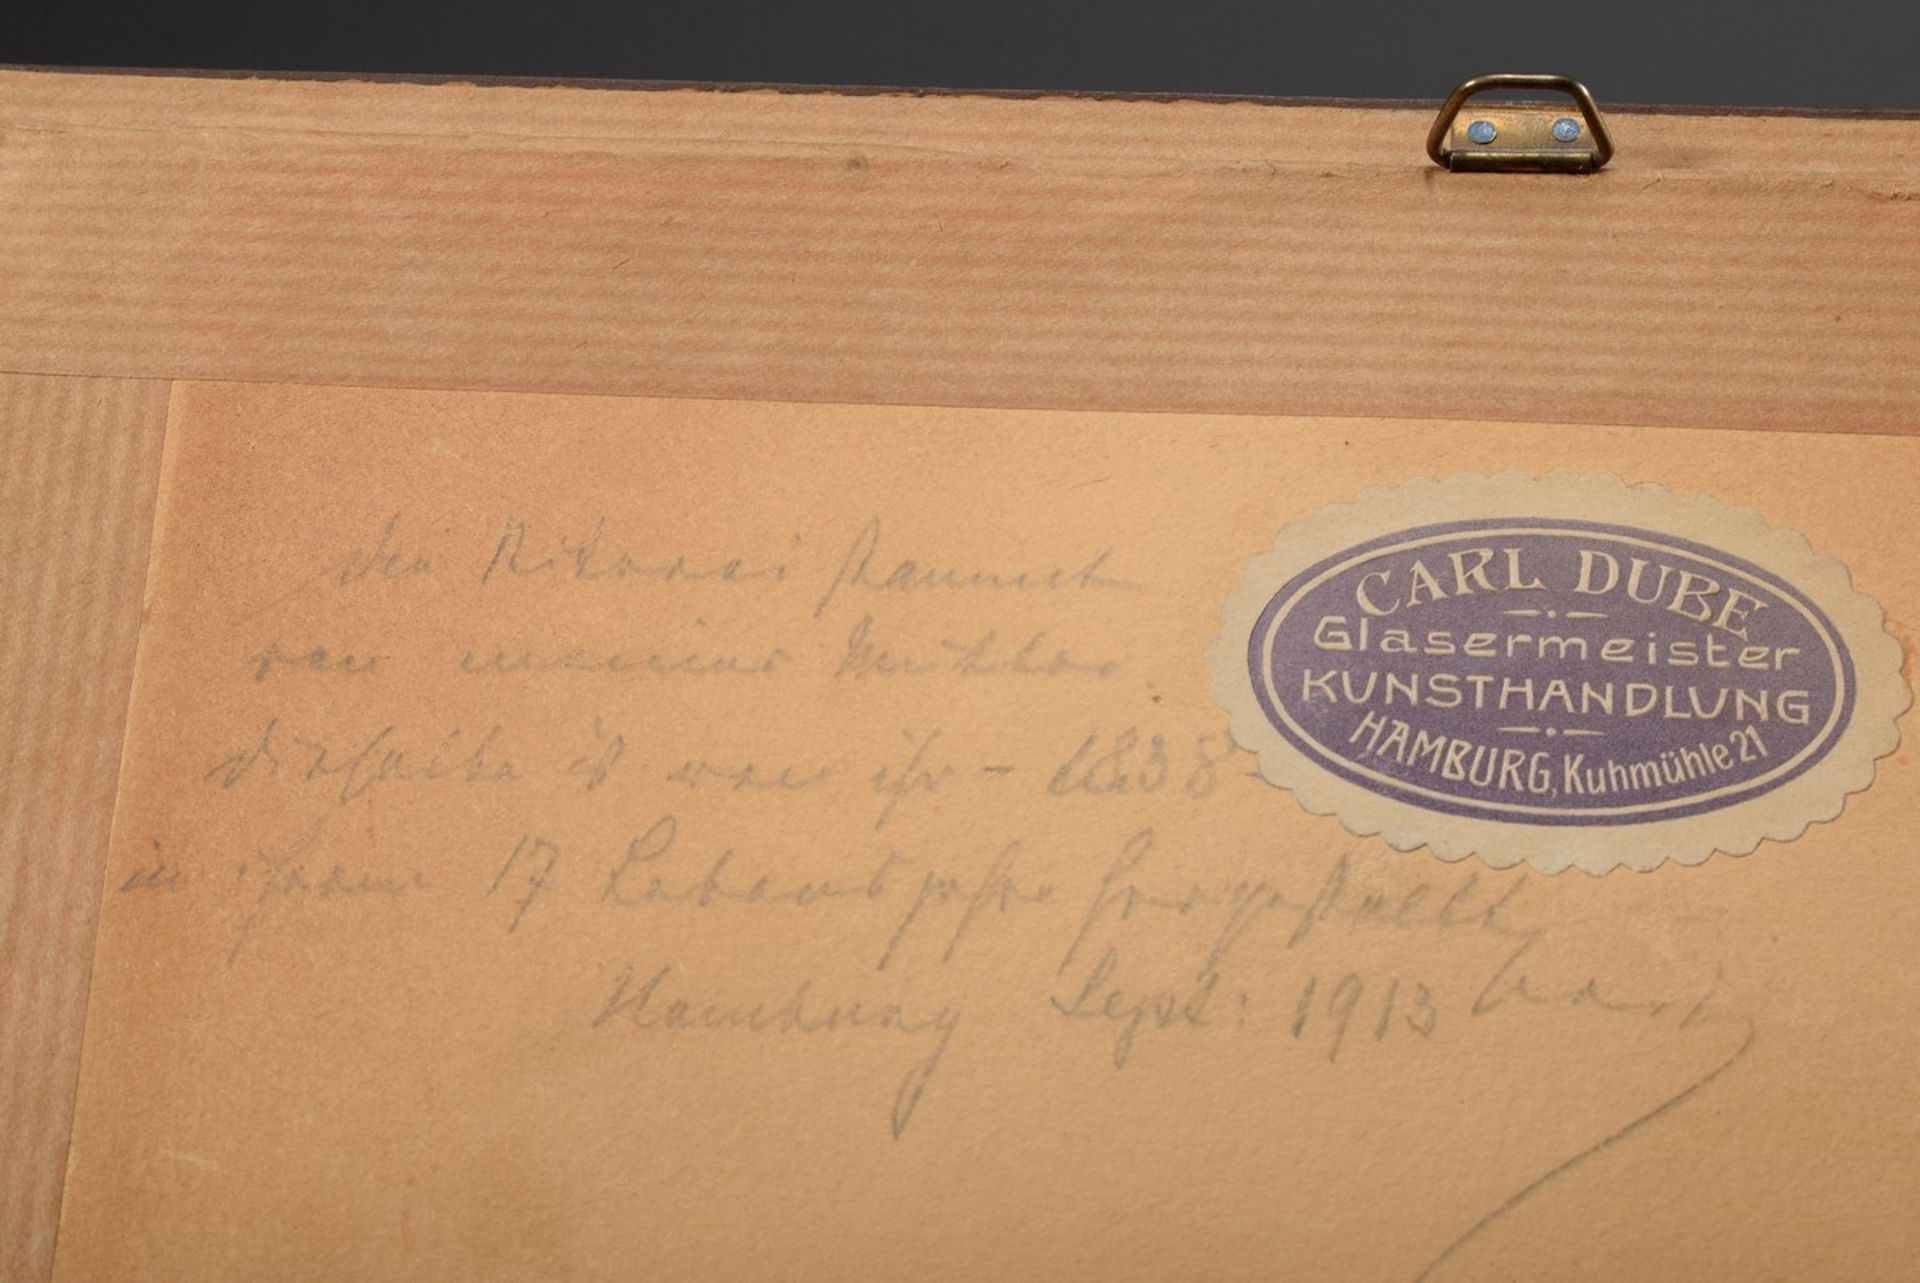 Die Stikerei stammt
von meiner Mutter.
Dieselbe ist von ihr - 1838 -
in ihrem 17 Lebensjahre hergestellt
Hamburg Sept: 1913
CARL DUBE
Glasermeister
KUNSTHANDLUNG
HAMBURG, Kuhmühle 21